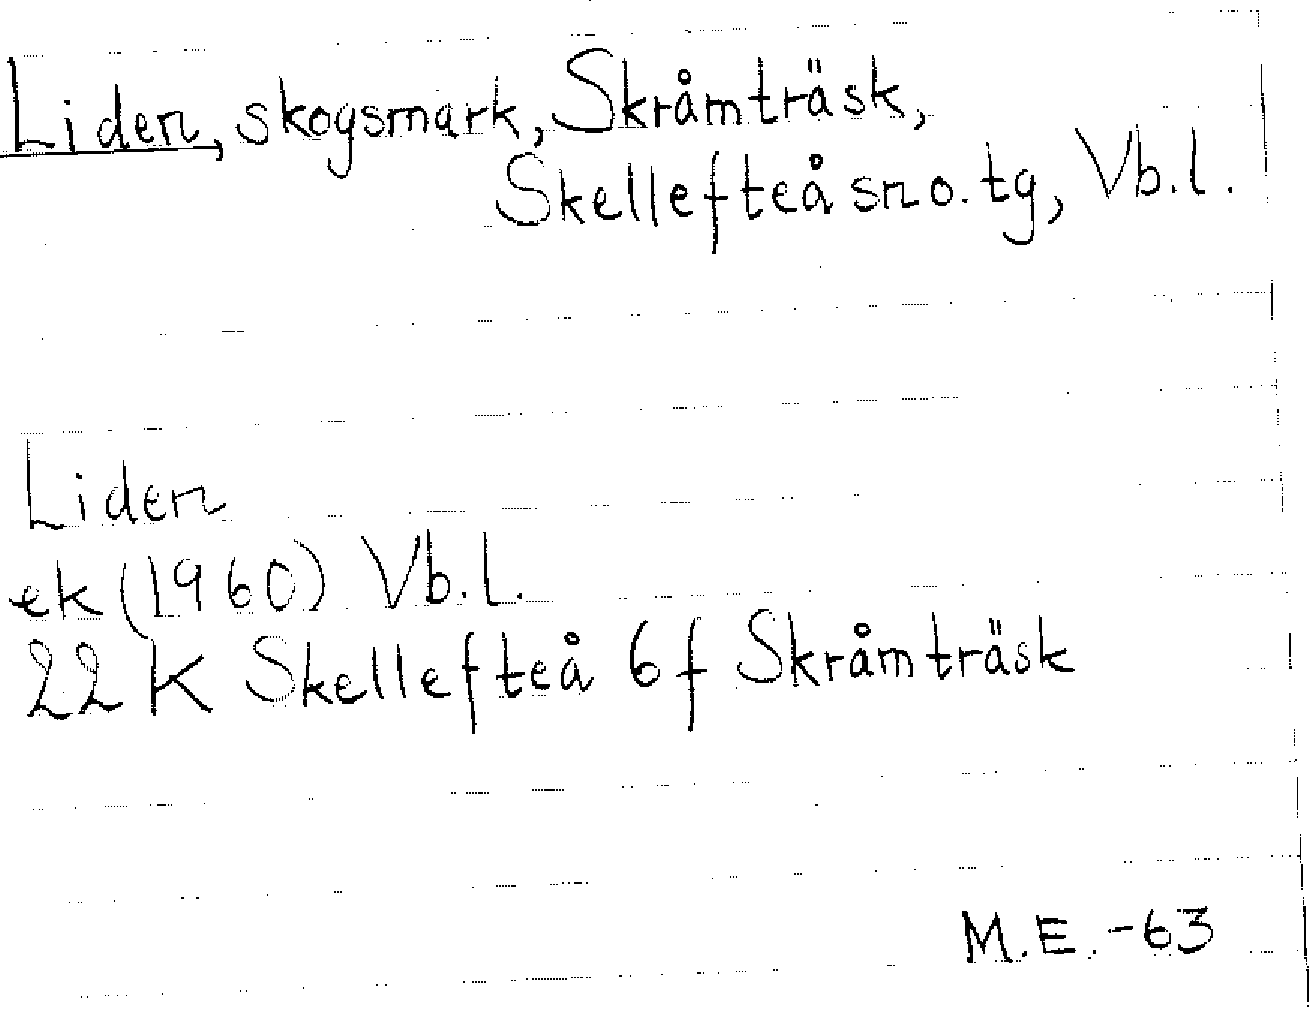 Liden, skogsmark, Skråmträsk,
Skellefteå sn o. tg, Vb.l.
Liden
ek (1960) Vb.l.
22 K Skellefteå 6f Skråmträsk
M.E. -63